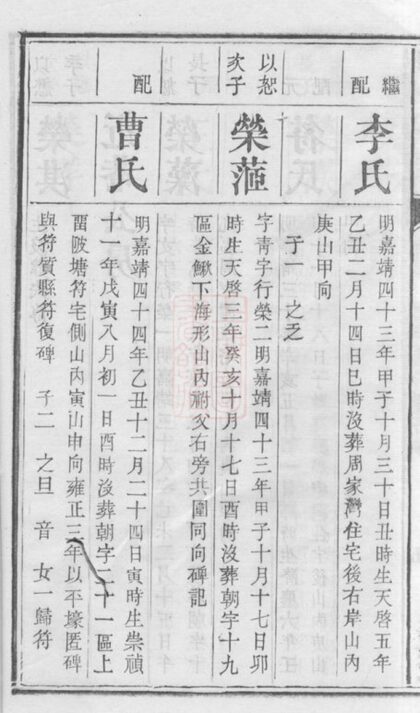 繼配
李氏
明嘉靖四十三年甲子十月三十日丑時生天啓五年
乙丑二月十四日巳時沒葬周家灣住宅後右岸山內
庚山甲向
子一 之乏
以恕次子
榮范
字青字行榮二明嘉靖四十三年甲子十月十七日卯
時生天啓三年癸亥十月十七日酉時沒葬朝字十九
區金鰍下海形山內祔父右旁共圍同向碑記
配
曹氏
明嘉靖四十四年乙丑十二月二十四日寅時生崇禎
十一年戊寅八月初一日酉時沒葬朝字二十一區上
畱陂塘符宅側山內寅山申向雍正三年以平壕匿碑
與符質縣符復碑 子二 之旦 音 女一歸符